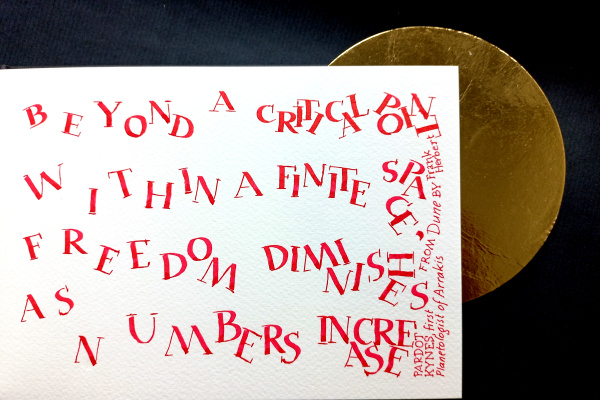 BEYOND A CRITICAL POINT
WITHIN A FINITE SPACE,
FREEDOM DIMINISHES
AS NUMBERS INCREASE
PARDOT-
KYNES, first
Planetologist of Arrakis
FROM Dune BY Frank
Herbert